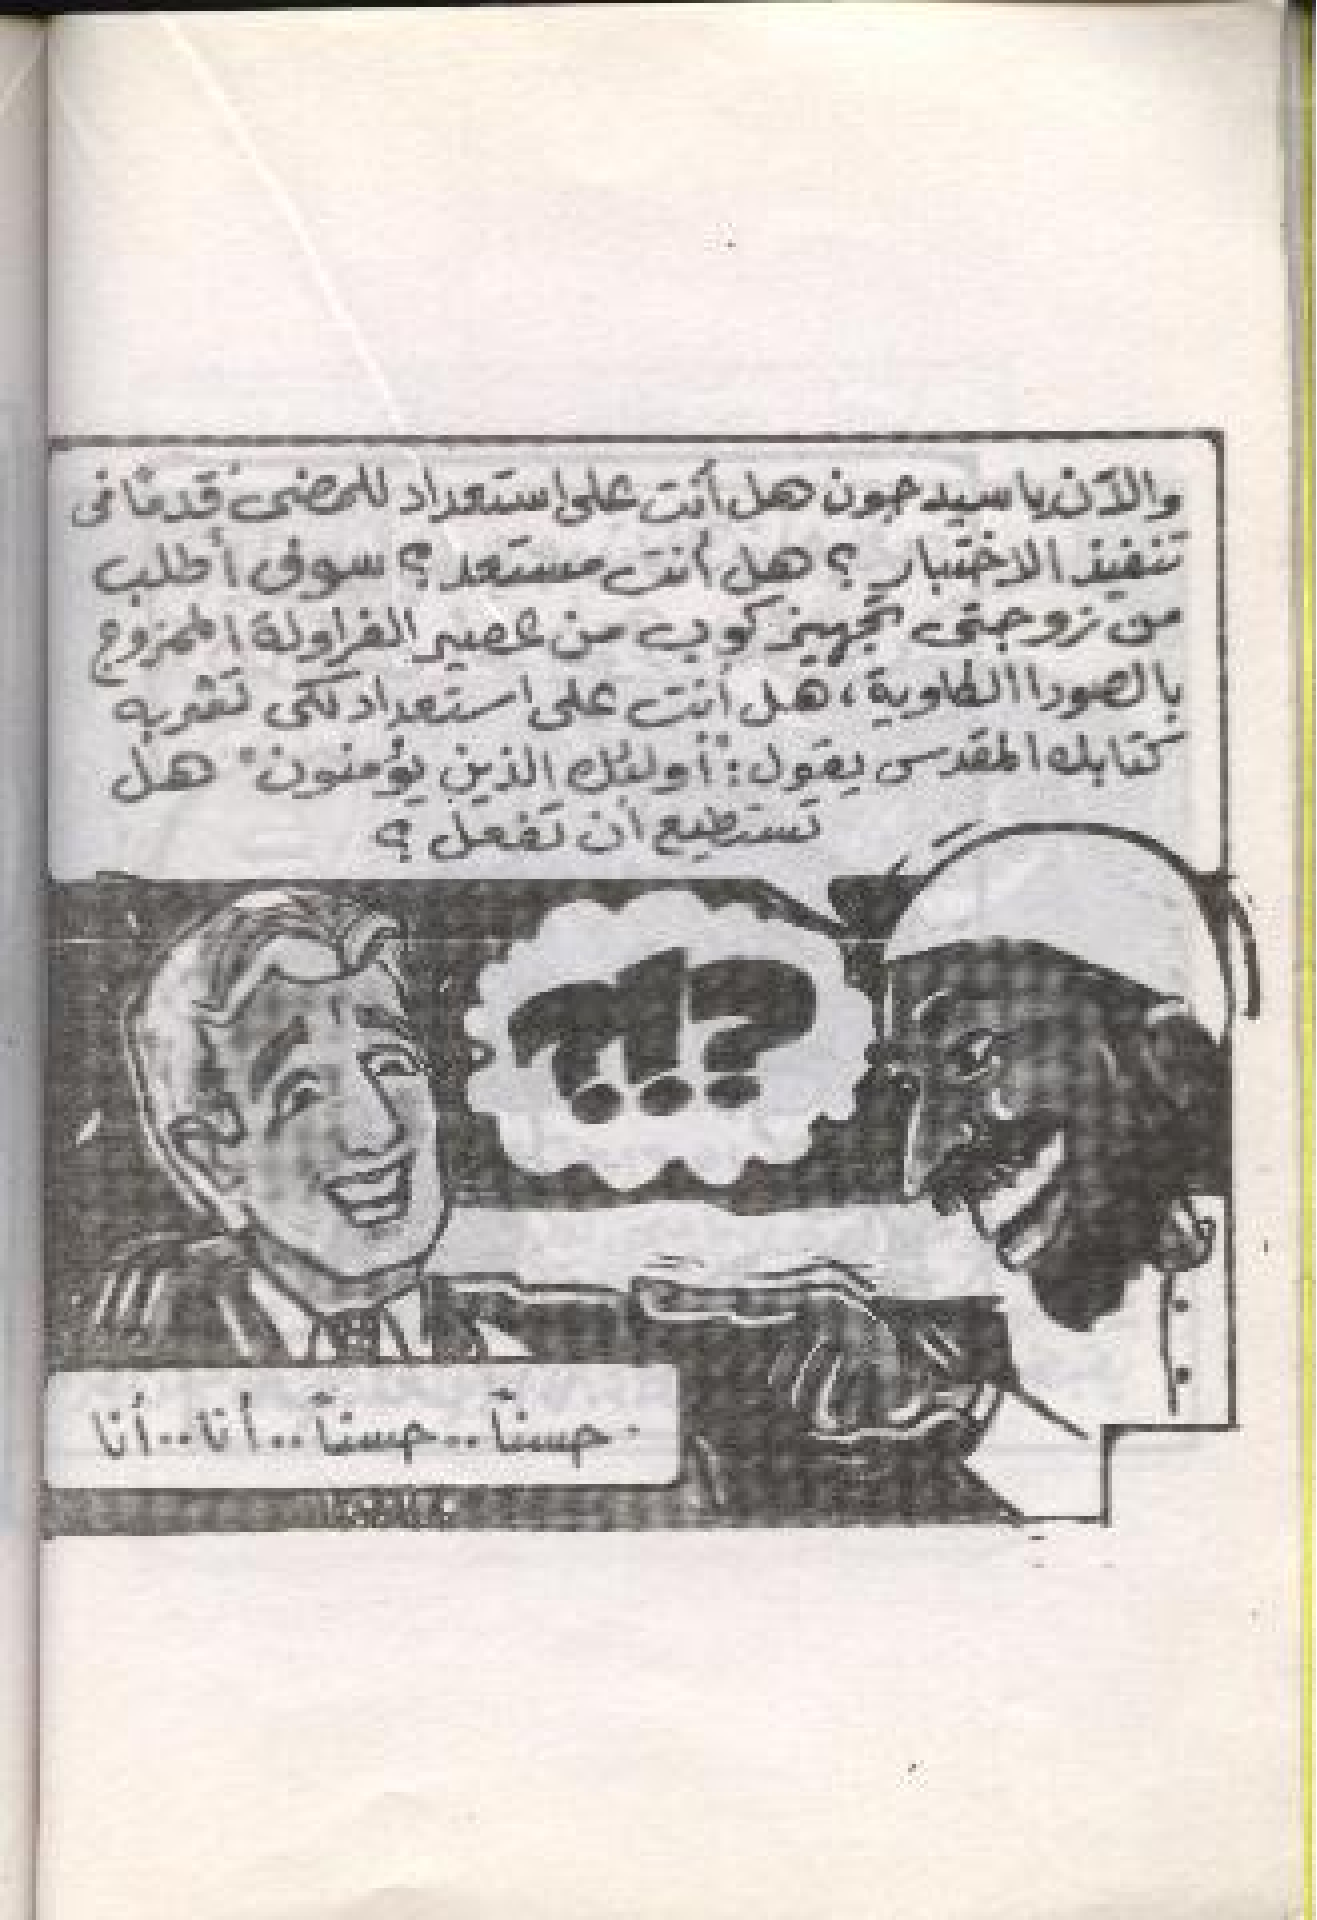 والآن يا سيد جون هل أنت على استعداد للمضى قدمًا فى
تنفيذ الاختبار ؟ هل أنت مستعد ؟ سوف أطلب
من زوجتى تجهيز كوب من عصير الفراولة الممزوج
بالصودا الكاوية ، هل أنت على استعداد لكى تشربه
كتابك المقدس يقول : "أولئك الذين يؤمنون" هل
تستطيع أن تفعل ؟
؟!؟
حسنًا .. حسنًا .. أنا .. أنا